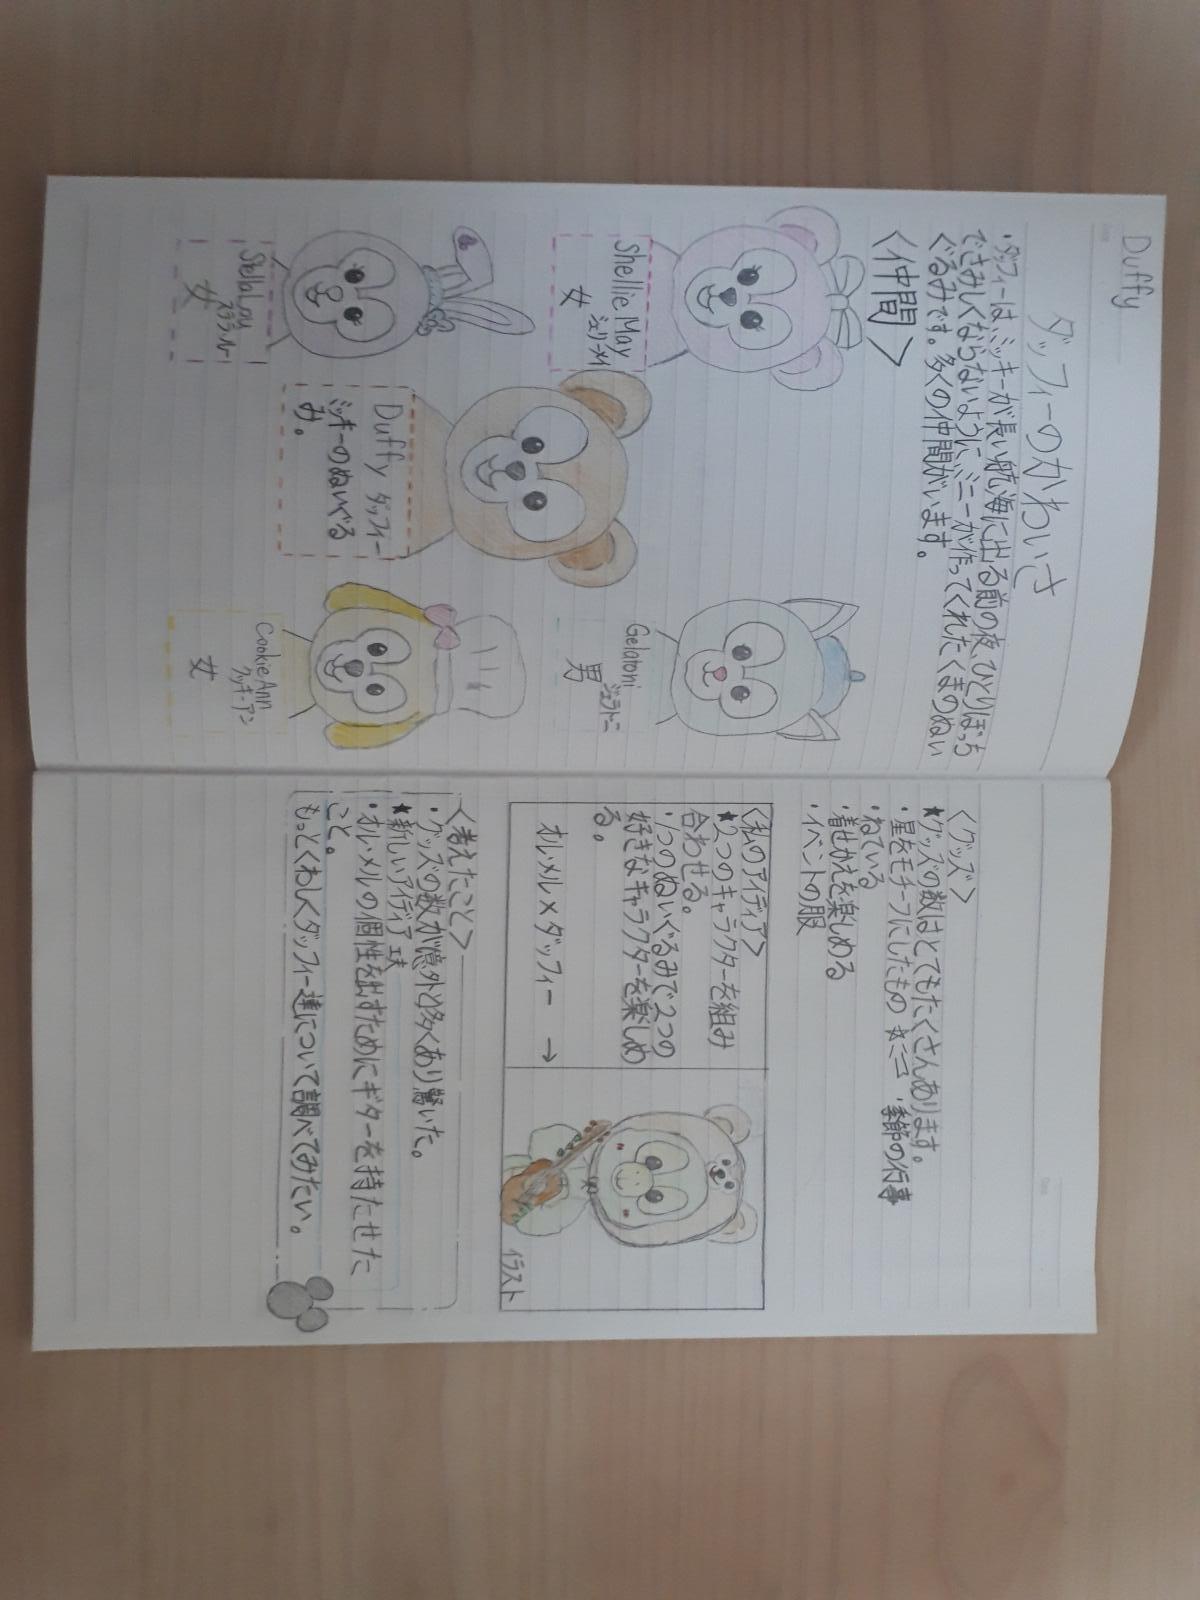 Duffy
ダッフィーのかわいさ
・ダッフィーは、ミッキーが長い航海に出る前の夜、ひとりぼっち
でさみしくならないように、ミニーが作ってくれたくまのぬい
ぐるみです。多くの仲間がいます。
〈仲間〉
Shellie May
シェリーメイ
女
Gelatoni
ジェラトーニ
男
Duffy ダッフィー
ミッキーのぬいぐる
み。
StellaLou
ステラ・ルー
女
CookieAnn
クッキー・アン
女
〈グッズ〉
★グッズの数はとてもたくさんあります。
・星をモチーフにしたもの
・季節の行事
・ねている
・着せかえを楽しめる
・イベントの服
〈私のアイディア〉
★2つのキャラクターを組み
合わせる。
・1つのぬいぐるみで2つの
好きなキャラクターを楽しめ
る。
オルメル×ダッフィー →
イラスト
〈考えたこと〉
・グッズの数が意外と多くあり驚いた。
★新しいアイディア
・オルメルの個性を出すためにギターを持たせた
こと。
もっとくわしくダッフィー達について調べてみたい。